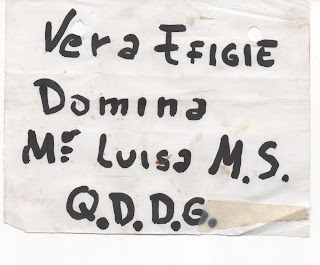 Vera EFIGIE
Domina
Mª Luisa M.S.
Q.D.D.G.